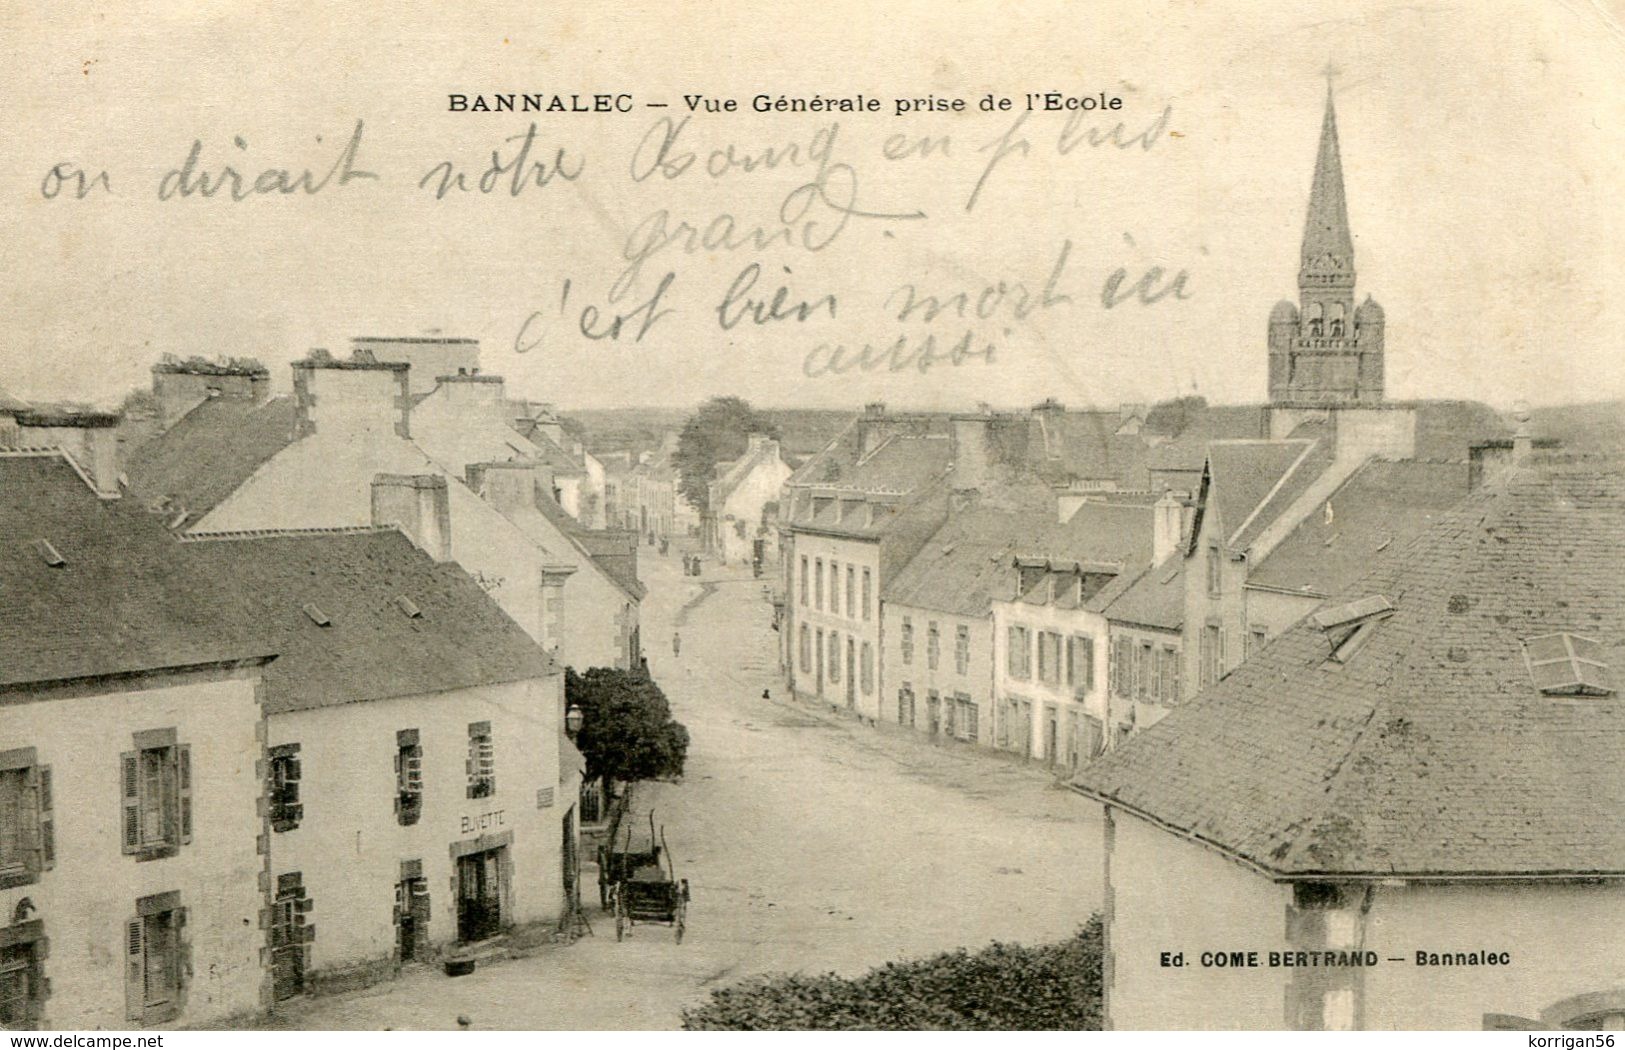 BANNALEC — Vue Générale prise de l'École
on dirait nôtre Bourg en plus
grand.
c'est bien mort ici
aussi
BUVETTE
Ed. COME BERTRAND — Bannalec
www.delcampe.net
korrigan56